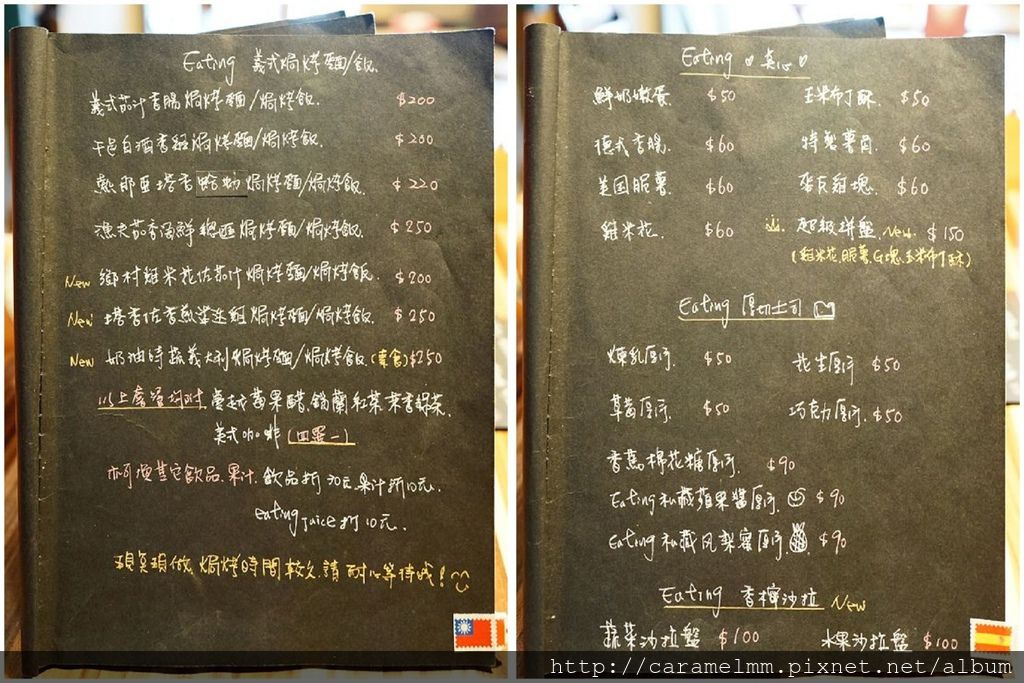 Eating 義式焗烤麵/飯
義式茄汁香腸焗烤麵/焗烤飯. $200
白酒香菇焗烤麵/焗烤飯. $200
熱那亞塔香蛤蜊焗烤麵/焗烤飯. $220
漁夫茄香海鮮總匯焗烤麵/焗烤飯. $250
New 鄉村雞米花佐茄汁焗烤麵/焗烤飯. $200
New 塔香佐香煎 焗烤麵/焗烤飯. $250
New 奶油時蔬義大利焗烤麵/焗烤飯(素食) $250
以上套餐均附 蔓越莓果醋.錫蘭紅茶.茉香綠茶.
美式咖啡(四選一)
亦可換其它飲品.果汁.飲品折30元.果汁折10元.
eating juice折10元.
現點現做.焗烤時間較久.請耐心等待哦!
Eating ♡點心♡
鮮奶嫩蛋. $50 玉米布丁酥. $50
德式香腸. $60 特製薯角. $60
美國脆薯. $60 麥克雞塊. $60
雞米花. $60 超級拼盤. New $150
(雞米花.脆薯.G塊.玉米布丁酥)
Eating 厚切土司
煉乳厚片. $50 花生厚片 $50
草莓厚片. $50 巧克力厚片. $50
香蕉棉花糖厚片. $90
Eating 私藏蘋果醬厚片. $90
Eating 私藏鳳梨蜜厚片. $90
Eating 香檸沙拉 New
蔬菜沙拉盤 $100 水果沙拉盤 $100
http://caramelmm.pixnet.net/album